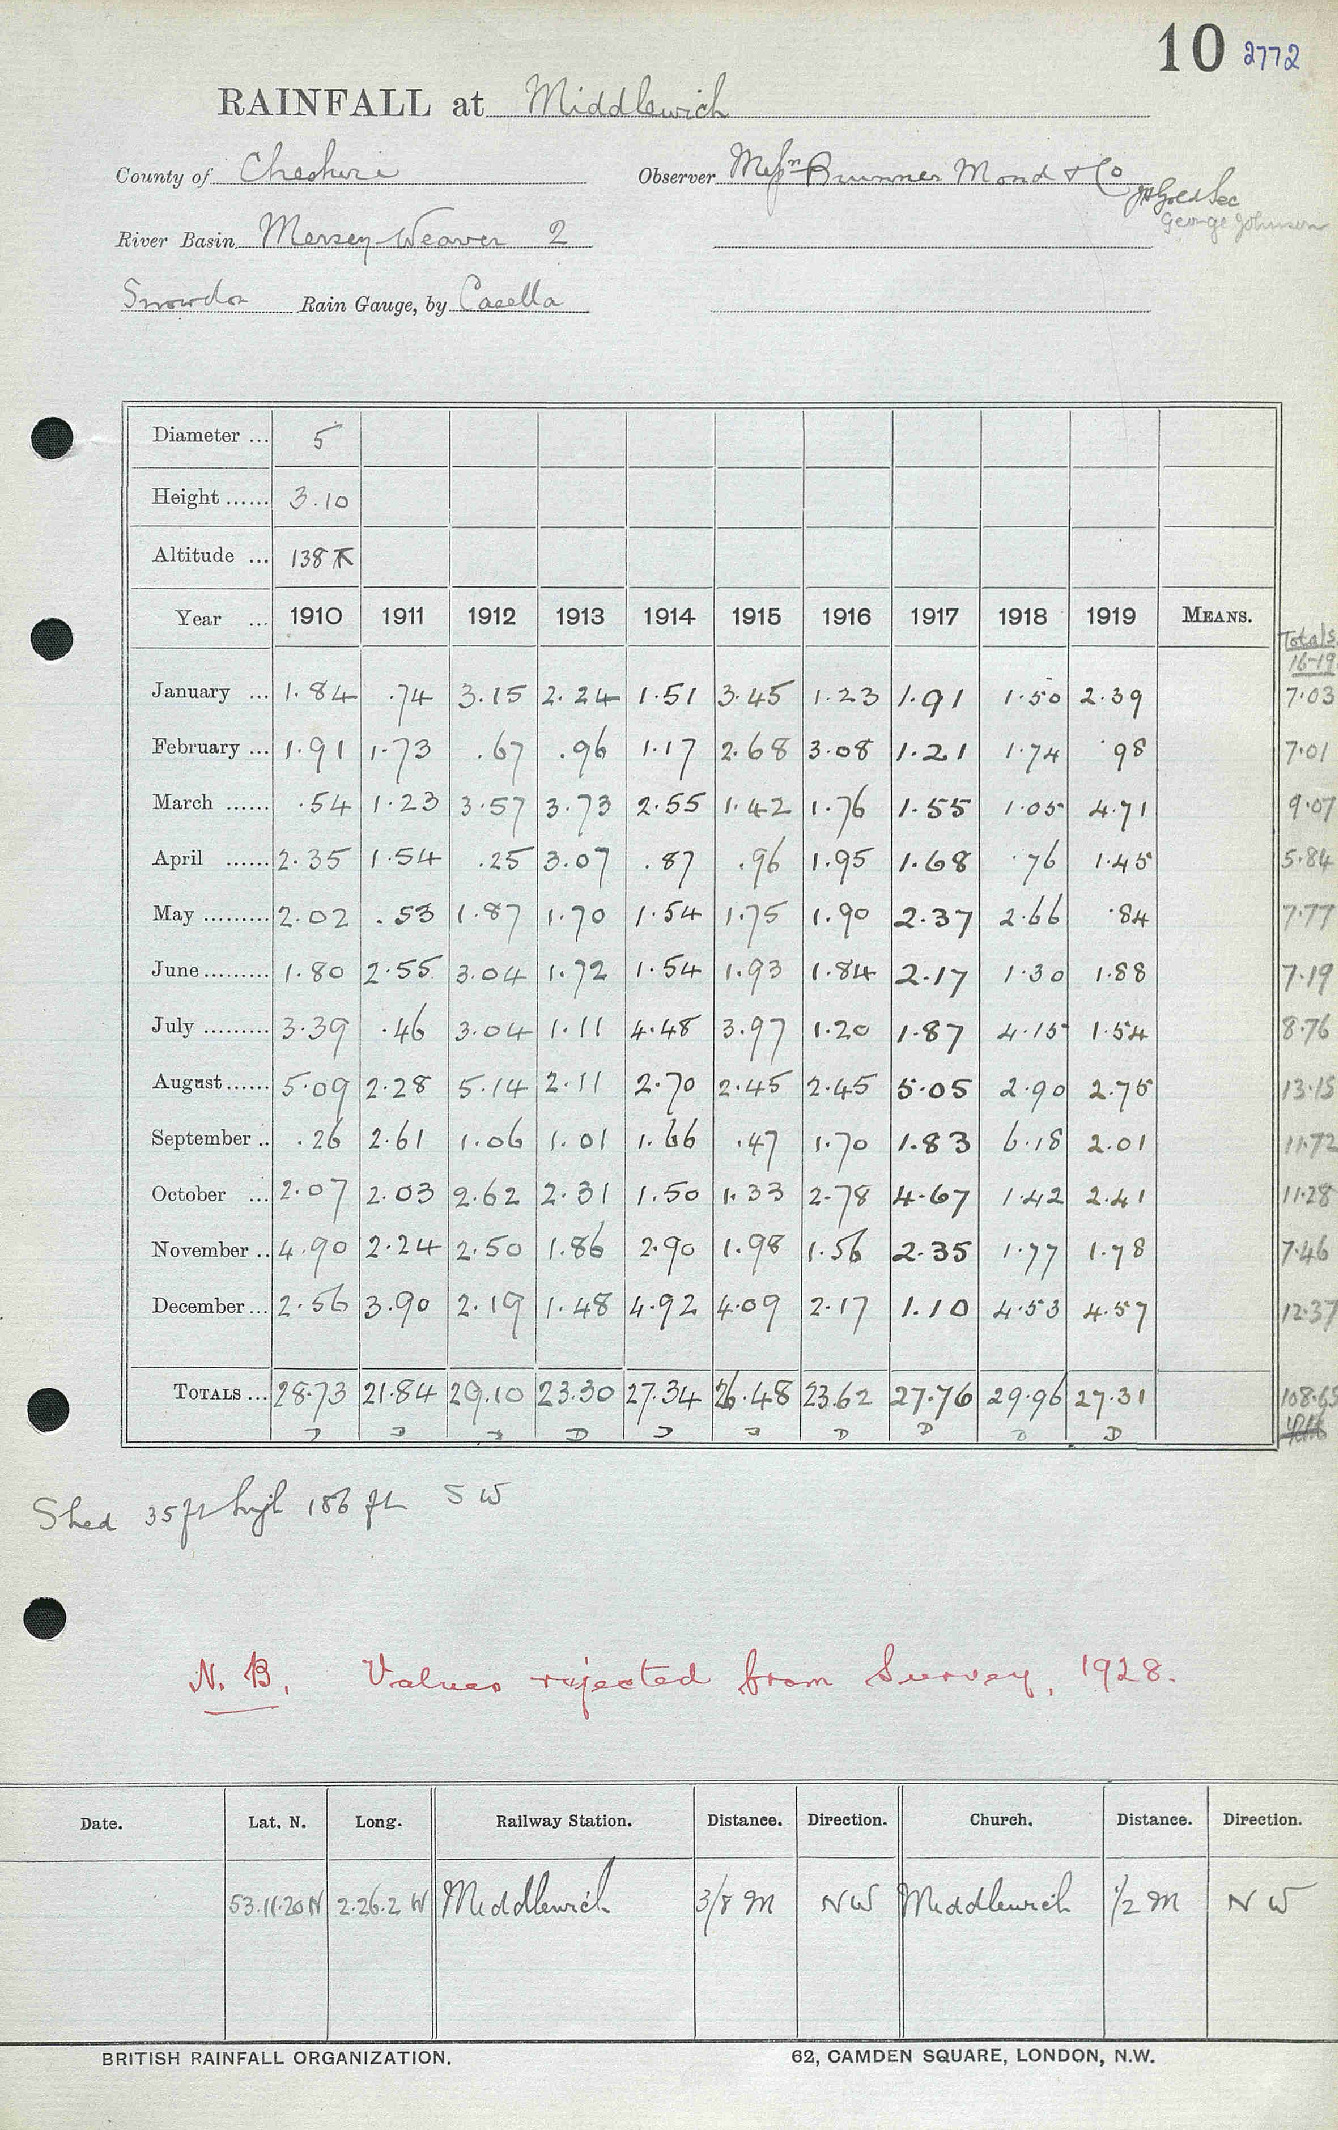 10 2772
RAINFALL at Middlewich
County of Cheshire Observer Messrs Brunner Mond & Co
George Johnson
River Basin Mersey-Weaver 2
Snowdon Rain Gauge, by Casella
Diameter ... 5
Height ...... 3.10
Altitude ... 138
Year ... 1910 1911 1912 1913 1914 1915 1916 1917 1918 1919 MEANS. Totals 16-19
January ... 1.84 .74 3.15 2.24 1.51 3.45 1.23 1.91 1.50 2.39 7.03
February ... 1.91 1.73 .67 .96 1.17 2.68 3.08 1.21 1.74 .98 7.01
March ...... .54 1.23 3.57 3.73 2.55 1.42 1.76 1.55 1.05 4.71 9.07
April ...... 2.35 1.54 .25 3.07 .87 .96 1.95 1.68 .76 1.45 5.84
May ......... 2.02 .53 1.87 1.70 1.54 1.75 1.90 2.37 2.66 .84 7.77
June ......... 1.80 2.55 3.04 1.72 1.54 1.93 1.84 2.17 1.30 1.88 7.19
July ......... 3.39 .46 3.04 1.11 4.48 3.97 1.20 1.87 4.15 1.54 8.76
August ...... 5.09 2.28 5.14 2.11 2.70 2.45 2.45 5.05 2.90 2.75 13.15
September .. .26 2.61 1.06 1.01 1.66 .47 1.70 1.83 6.18 2.01 11.72
October ... 2.07 2.03 2.62 2.31 1.50 1.33 2.78 4.67 1.42 2.41 11.28
November .. 4.90 2.24 2.50 1.86 2.90 1.98 1.56 2.35 1.77 1.78 7.46
December ... 2.56 3.90 2.19 1.48 4.92 4.09 2.17 1.10 4.53 4.57 12.37
TOTALS ... 28.73 21.84 29.10 23.30 27.34 26.48 23.62 27.76 29.96 27.31 108.65
D D D D D D D D D D
Shed 35 ft high 186 ft SW
N.B. Values rejected from Survey, 1928.
Date. Lat. N. Long. Railway Station. Distance. Direction. Church. Distance. Direction.
53.11.20 N 2.26.2 W Middlewich 3/8 M NW Middlewich 1/2 M NW
BRITISH RAINFALL ORGANIZATION. 62, CAMDEN SQUARE, LONDON, N.W.